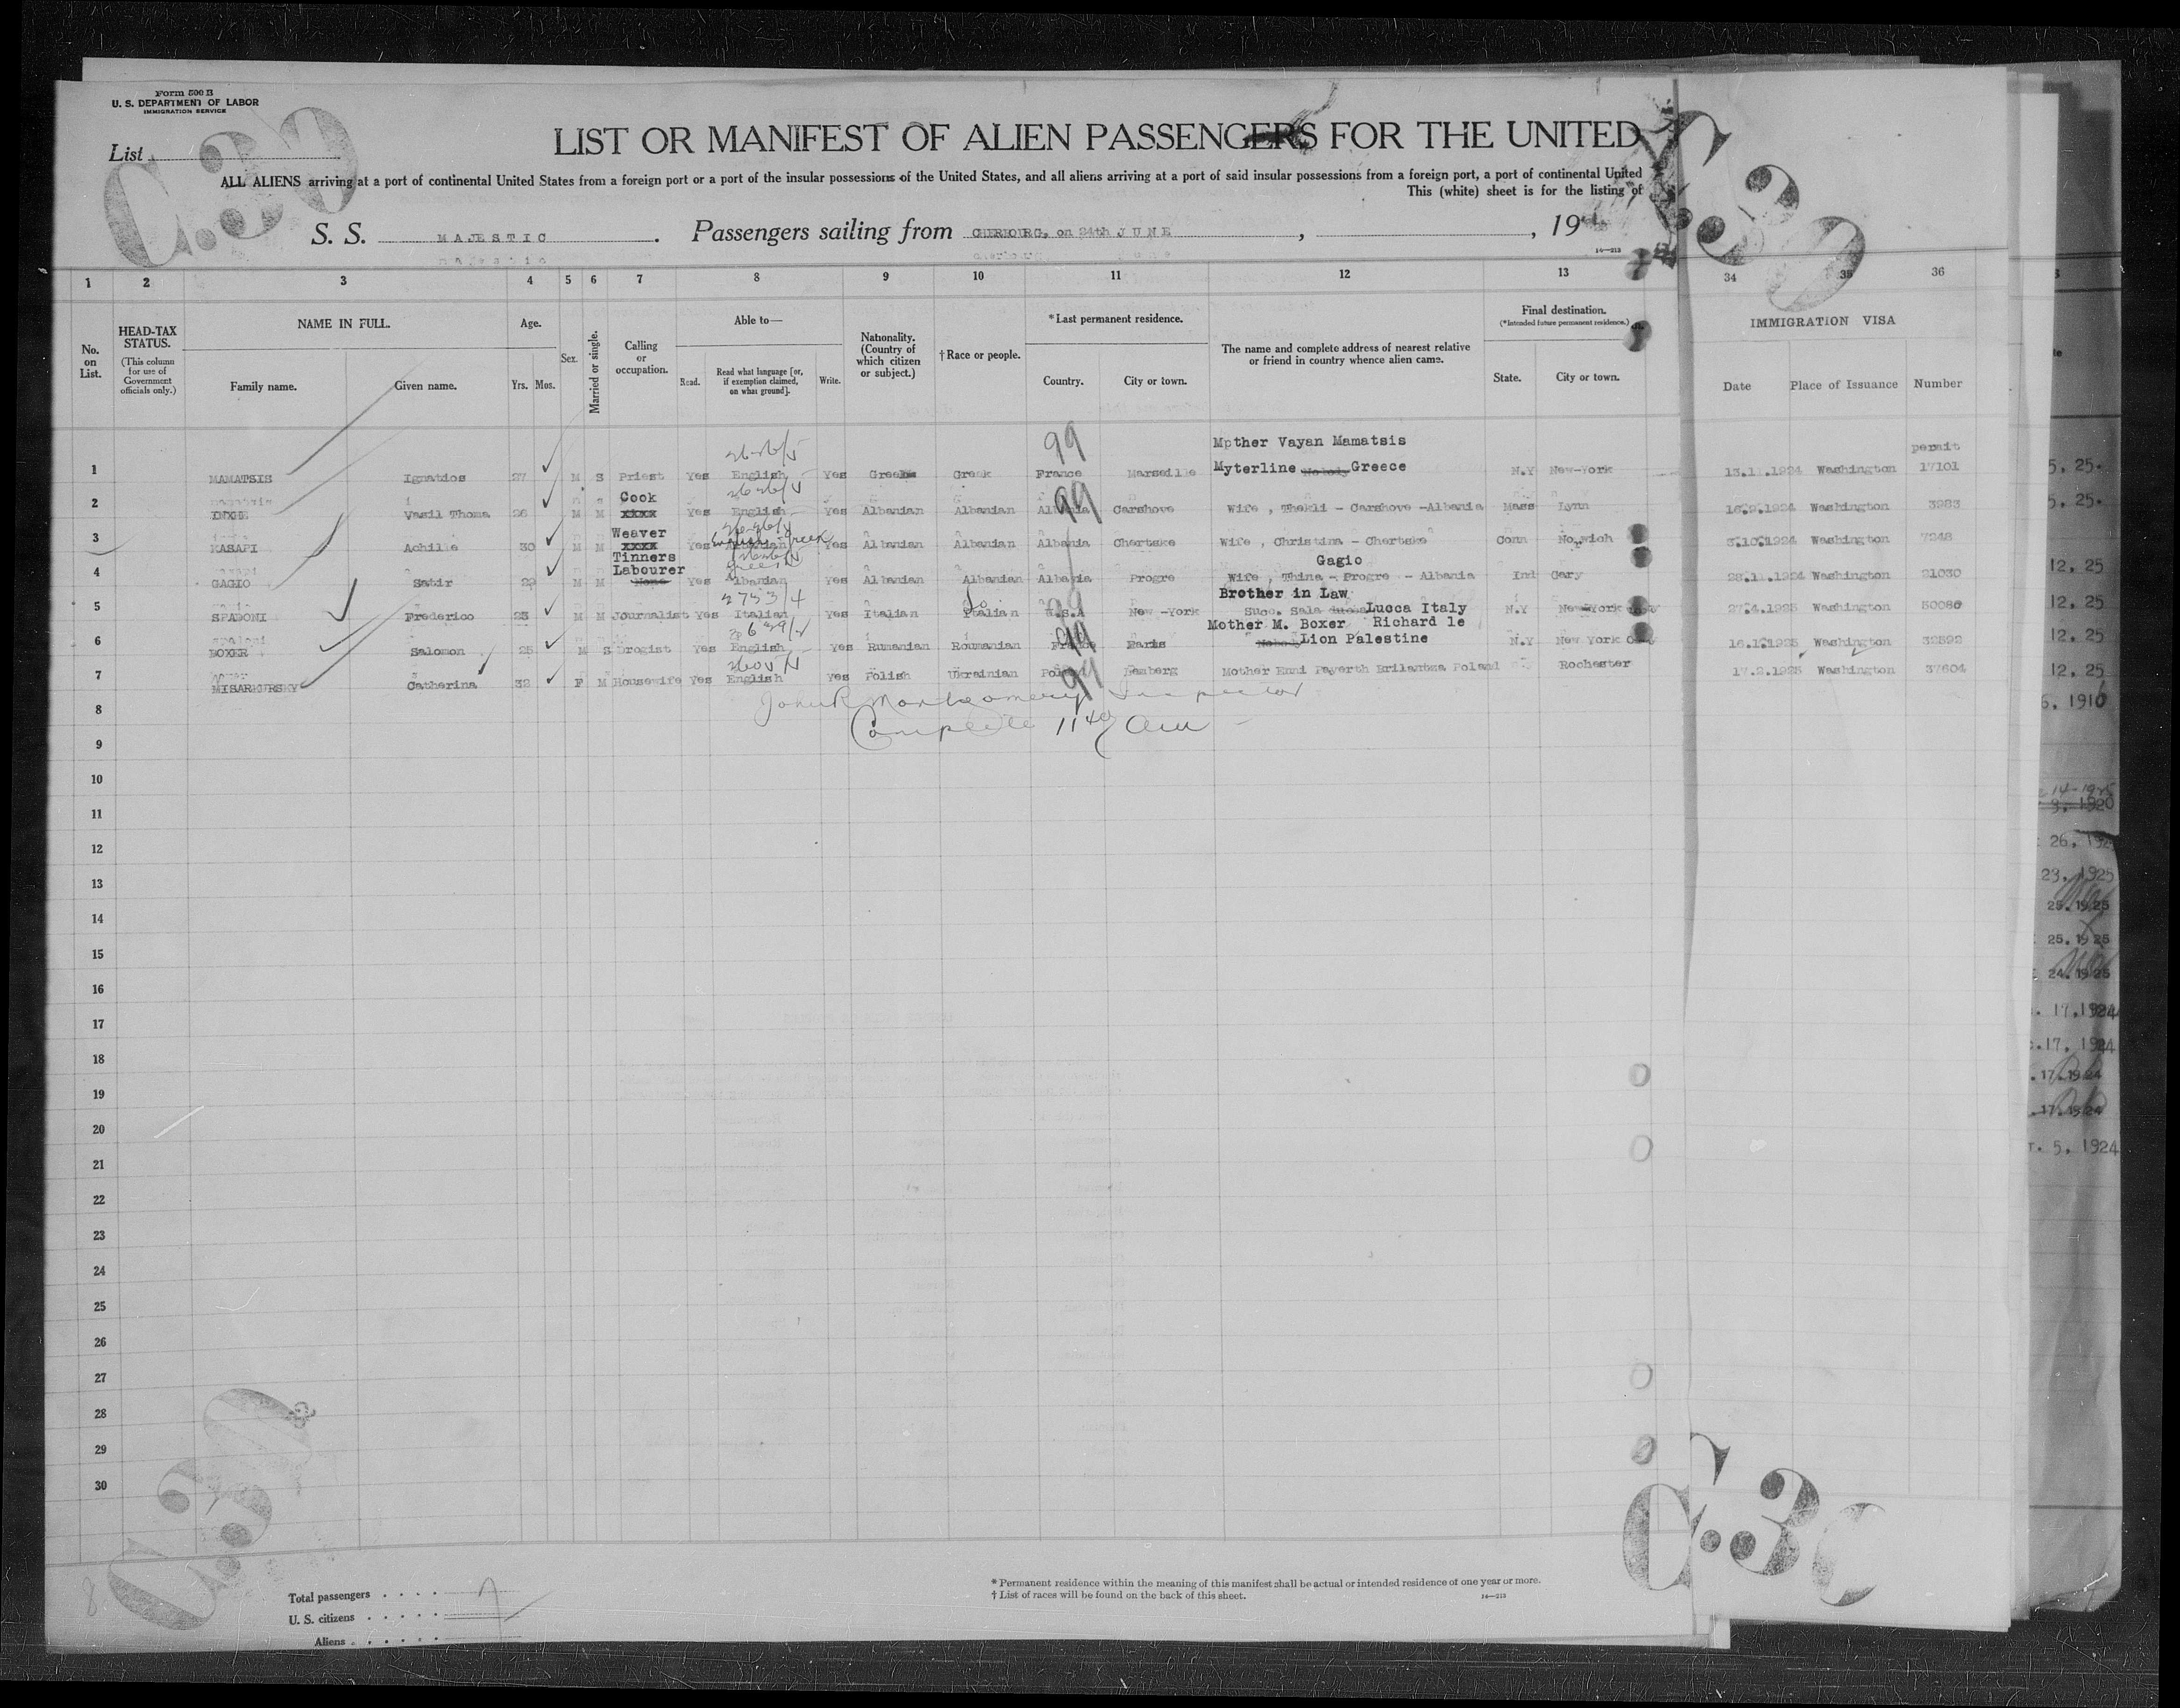 Form 500 B
U. S. DEPARTMENT OF LABOR
IMMIGRATION SERVICE
C.30
C.30
List
LIST OR MANIFEST OF ALIEN PASSENGERS FOR THE UNITED
ALL ALIENS arriving at a port of continental United States from a foreign port or a port of the insular possessions of the United States, and all aliens arriving at a port of said insular possessions from a foreign port, a port of continental United
This (white) sheet is for the listing of
S. S. MAJESTIC. Passengers sailing from CHERBOURG, on 24th JUNE, , 19
14—213
1 2 3 4 5 6 7 8 9 10 11 12 13 34 35 36
No. on List.
HEAD-TAX STATUS. (This column for use of Government officials only.)
NAME IN FULL. Family name. Given name.
Age. Yrs. Mos.
Sex.
Married or single.
Calling or occupation.
Able to— Read. Read what language [or, if exemption claimed, on what ground]. Write.
Nationality. (Country of which citizen or subject.)
†Race or people.
*Last permanent residence. Country. City or town.
The name and complete address of nearest relative or friend in country whence alien came.
Final destination. (*Intended future permanent residence.) State. City or town.
IMMIGRATION VISA Date Place of Issuance Number
99 Mother Vayan Mamatsis permit
1 MAMATSIS Ignatios 27 M S Priest Yes English Yes Greek France Marseille Myterline Nobody Greece N.Y New-York 13.11.1924 Washington 17101
Cook
2 Vasil Thoma 26 M M xxxx Yes English Yes Albanian Albanian Albania 99 Carshove Wife, Thekli - Carshove -Albania Mass Lynn 16.9.1924 Washington 3983
Weaver English-Greek
3 KASAPI Achille 30 M M xxxx Yes Albanian Yes Albanian Albanian Albania Chertske Wife, Christina - Chertske Conn Norwich 3.10.1924 Washington 7248
Tinners
Labourer Greek Gagio
4 GAGIO Satir 29 M M None Yes Albanian Yes Albanian Albanian Albania Progre Wife, Thina - Progre - Albania Ind Gary 28.11.1924 Washington 21030
2733/4 Brother in Law
5 SPADONI Frederico 23 M M Journalist Yes Italian Yes Italian Italian U.S.A New-York Succ. Sala Lucca Italy N.Y New-York 27.4.1925 Washington 50086
Mother M. Boxer Richard le
6 BOXER Salomon 25 M S Drogist Yes English Yes Rumanian Roumanian France Paris Nobody Lion Palestine N.Y New York 16.1.1925 Washington 32592
7 Catherina 32 F M Housewife Yes English Yes Polish Ukrainian Poland 99 Lemberg Mother Enni Payerth Brilantza Poland Rochester 17.2.1925 Washington 37604
8 John R Montgomery Inspector
Complete 11 40 AM
9
10
11
12
13
14
15
16
17
18
19
20
21
22
23
24
25
26
27
28
29
30
5. 25.
5. 25.
12. 25
12. 25
12. 25
12. 25
6. 1910
14-1925
9. 1920
26. 192
23. 1925
25. 1925
25. 1925
24. 1925
. 17, 1924
.17, 1924
. 17. 1924
.17. 1924
5. 1924
C.30
C.30
8
Total passengers . . . . 7
U. S. citizens . . . . .
Aliens . . . . . .
*Permanent residence within the meaning of this manifest shall be actual or intended residence of one year or more.
†List of races will be found on the back of this sheet.
14—213